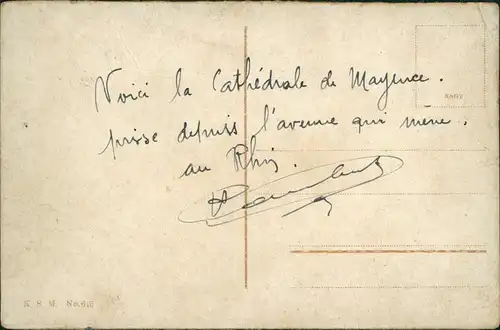 Voici la Cathédrale de Mayence.
prise depuis l'avenue qui mène.
au Rhin.
K S M.